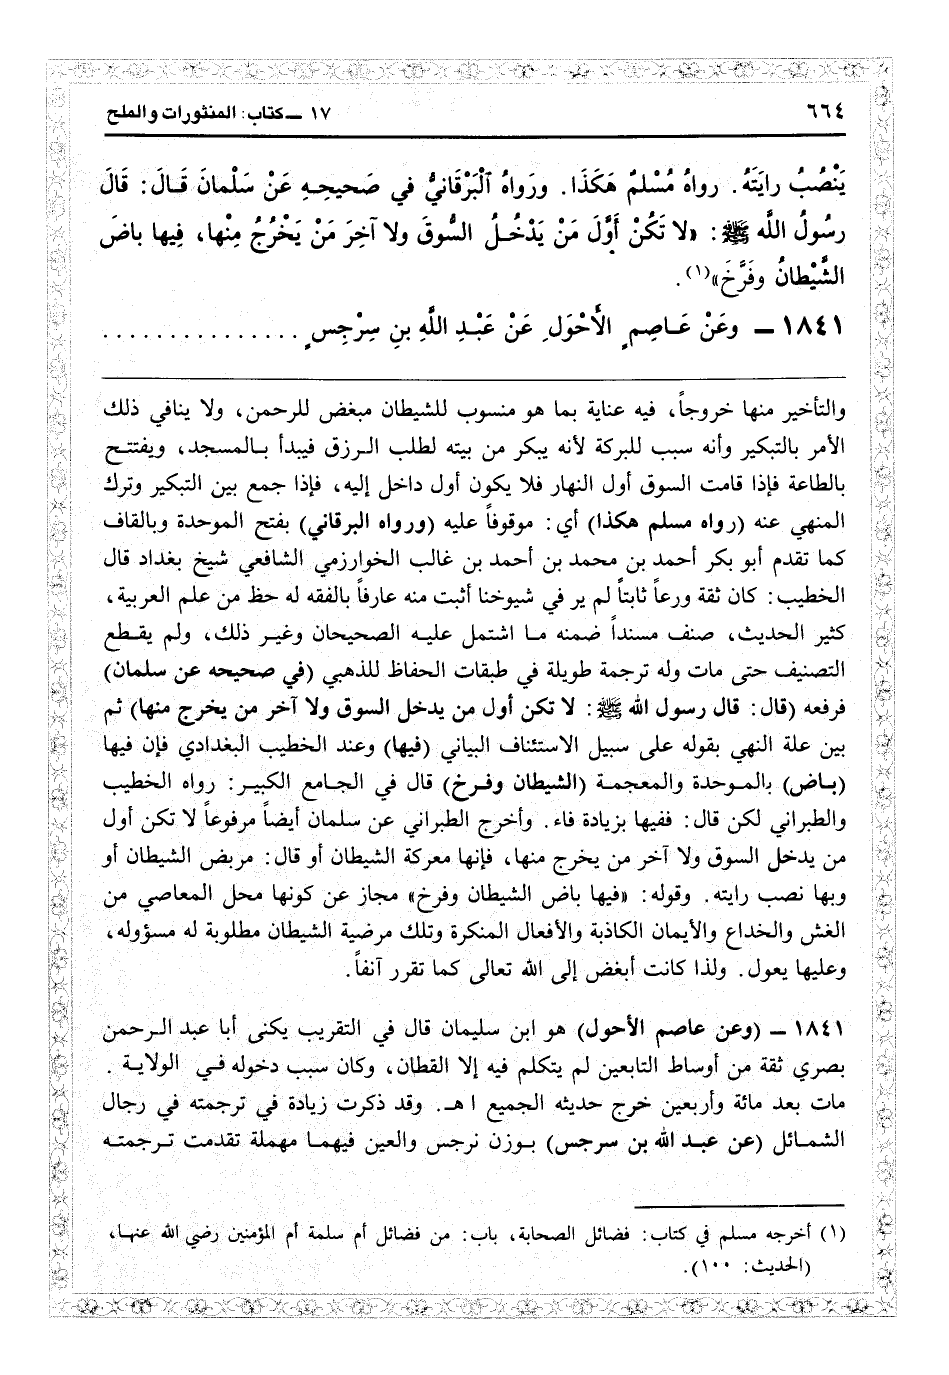 ٦٦٤
١٧ ــ كتاب: المنثورات والملح
يَنْصُبُ رايَتَهُ. رواهُ مُسْلِمٌ هَكَذَا. ورَواهُ الْبَرْقَانيُّ في صَحيحِـهِ عَنْ سَلْمانَ قَـالَ: قَالَ
رسُولُ اللَّه ﷺ: «لا تَكُنْ أَوَّلَ مَنْ يَدْخُـلُ السُّوقَ ولا آخِرَ مَنْ يَخْرُجُ مِنْها، فِيها باضَ
الشَّيْطانُ وفَرَّخَ»(١).
١٨٤١ ــ وعَنْ عَـاصِمٍ الأَحْوَلِ عَنْ عَبْـدِ اللَّهِ بنِ سِرْجِسٍ . . . . . . . . . . . . . . .
والتأخير منها خروجاً، فيه عناية بما هو منسوب للشيطان مبغض للرحمن، ولا ينافي ذلك
الأمر بالتبكير وأنه سبب للبركة لأنه يبكر من بيته لطلب الـرزق فيبدأ بـالمسجد، ويفتتـح
بالطاعة فإذا قامت السوق أول النهار فلا يكون أول داخل إليه، فإذا جمع بين التبكير وترك
المنهي عنه (رواه مسلم هكذا) أي: موقوفاً عليه (ورواه البرقاني) بفتح الموحدة وبالقاف
كما تقدم أبو بكر أحمد بن محمد بن أحمد بن غالب الخوارزمي الشافعي شيخ بغداد قال
الخطيب: كان ثقة ورعاً ثابتاً لم ير في شيوخنا أثبت منه عارفاً بالفقه له حظ من علم العربية،
كثير الحديث، صنف مسنداً ضمنه مـا اشتمل عليـه الصحيحان وغيـر ذلك، ولم يقـطع
التصنيف حتى مات وله ترجمة طويلة في طبقات الحفاظ للذهبي (في صحيحه عن سلمان)
فرفعه (قال: قال رسول الله ﷺ: لا تكن أول من يدخل السوق ولا آخر من يخرج منها) ثم
بين علة النهي بقوله على سبيل الاستئناف البياني (فيها) وعند الخطيب البغدادي فإن فيها
(بـاض) بالمـوحدة والمعجمـة (الشيطان وفـرخ) قال في الجـامع الكبيـر: رواه الخطيب
والطبراني لكن قال: ففيها بزيادة فاء. وأخرج الطبراني عن سلمان أيضاً مرفوعاً لا تكن أول
من يدخل السوق ولا آخر من يخرج منها، فإنها معركة الشيطان أو قال: مربض الشيطان أو
وبها نصب رايته. وقوله: «فيها باض الشيطان وفرخ» مجاز عن كونها محل المعاصي من
الغش والخداع والأيمان الكاذبة والأفعال المنكرة وتلك مرضية الشيطان مطلوبة له مسؤوله،
وعليها يعول. ولذا كانت أبغض إلى الله تعالى كما تقرر آنفاً.
١٨٤١ ــ (وعن عاصم الأحول) هو ابن سليمان قال في التقريب يكنى أبا عبد الـرحمن
بصري ثقة من أوساط التابعين لم يتكلم فيه إلا القطان، وكان سبب دخوله فـي الولايـة .
مات بعد مائة وأربعين خرج حديثه الجميع ا هـ. وقد ذكرت زيادة في ترجمته في رجال
الشمـائل (عن عبـد الله بن سرجس) بـوزن نرجس والعين فيهمـا مهملة تقدمت تـرجمتـه
(١) أخرجه مسلم في كتاب: فضائل الصحابة، باب: من فضائل أم سلمة أم المؤمنين رضي الله عنهـا،
(الحديث: ١٠٠).